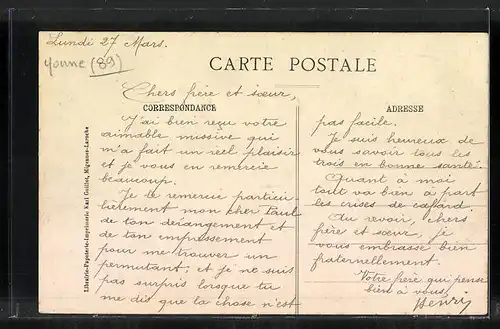 Lundi 27 Mars.
yonne (89)
CARTE POSTALE
Chers frère et sœur,
CORRESPONDANCE
J'ai bien reçu votre
aimable missive qui
m'a fait un réel plaisir
et je vous en remercie
beaucoup.
Je te remercie particu
lièrement mon cher Paul
de ton dérangement et
de ton empressement
pour me trouver un
permutant; et je ne suis
pas surpris lorsque tu
me dis que la chose n'est
ADRESSE
pas facile.
Je suis heureux de
vous savoir tous les
trois en bonne santé.
Quant à moi
tout va bien à part
les crises de cafard
Au revoir, chers
frère et sœur, je
vous embrasse bien
fraternellement.
Votre frère qui pense
bien à vous,
Henry
Librairie-Papeterie-Imprimerie Karl Guillot, Migennes-Laroche